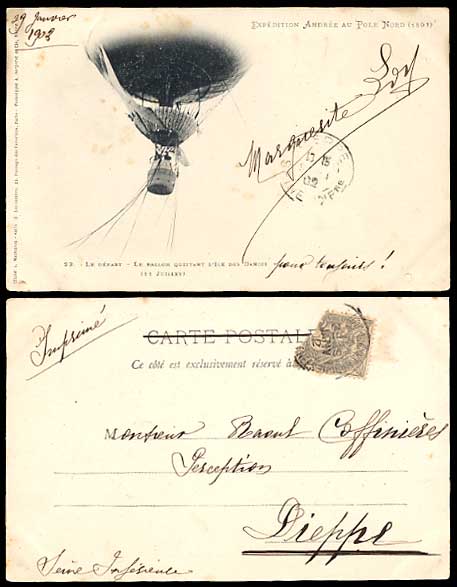 29 Janvier
1903
EXPÉDITION ANDRÉE AU POLE NORD
Marguerite
22. - LE DÉPART - LE BALLON QUITTANT L'ILE DES DANOIS
(11 JUILLET)
pour toujours!
Imprimé
CARTE POSTALE
Ce côté est exclusivement réservé à
Monsieur Raoul Coffinières
Perception
Dieppe
Seine Inférieure